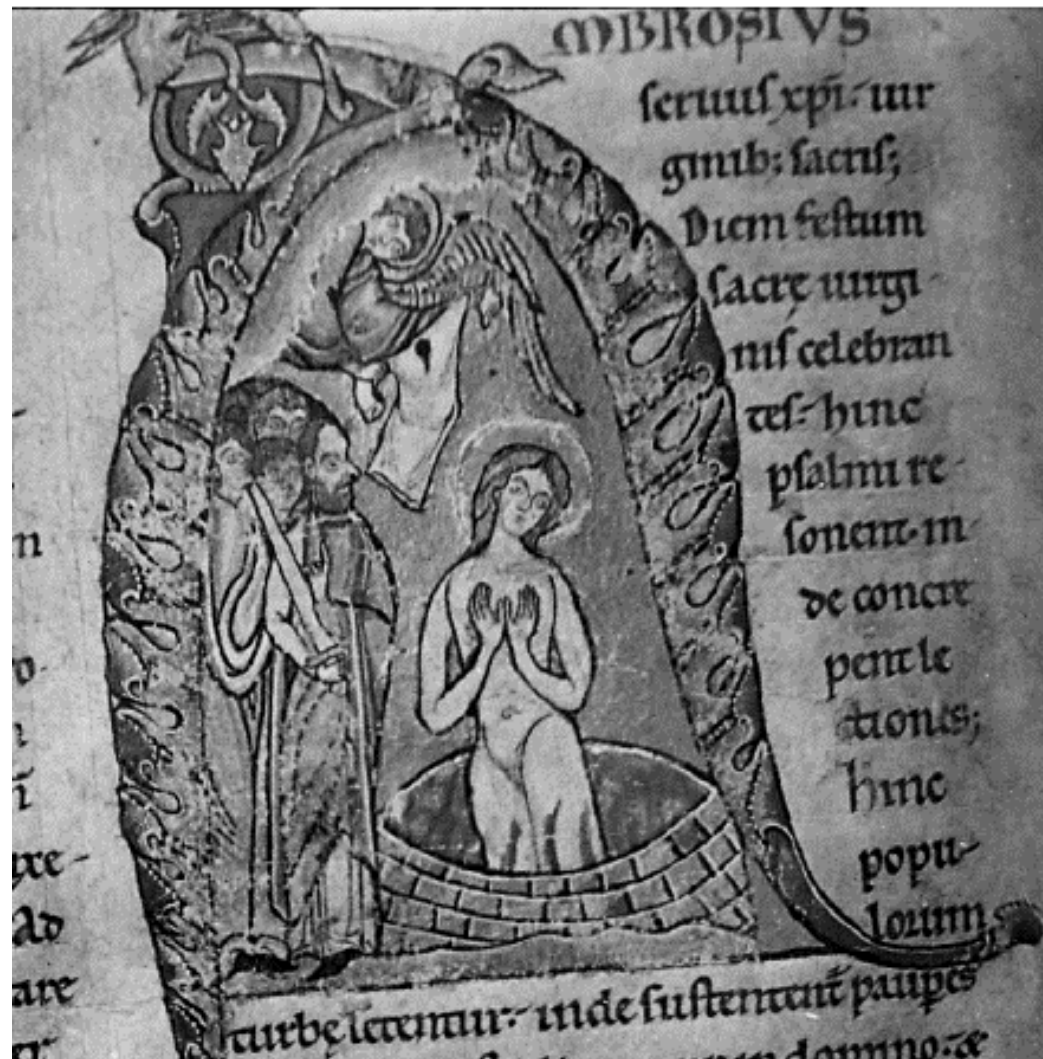 MBROSIVS
seruus xp̅i. uir
ginib; sacris;
Diem festum
sacrę uirgi
nis celebran
tes. hinc
psalmi re
sonent. in
de concre
pent le
ctiones;
hinc
popu-
lorum
turbę letentur. inde sustentent̅ paup̅es
domino. &